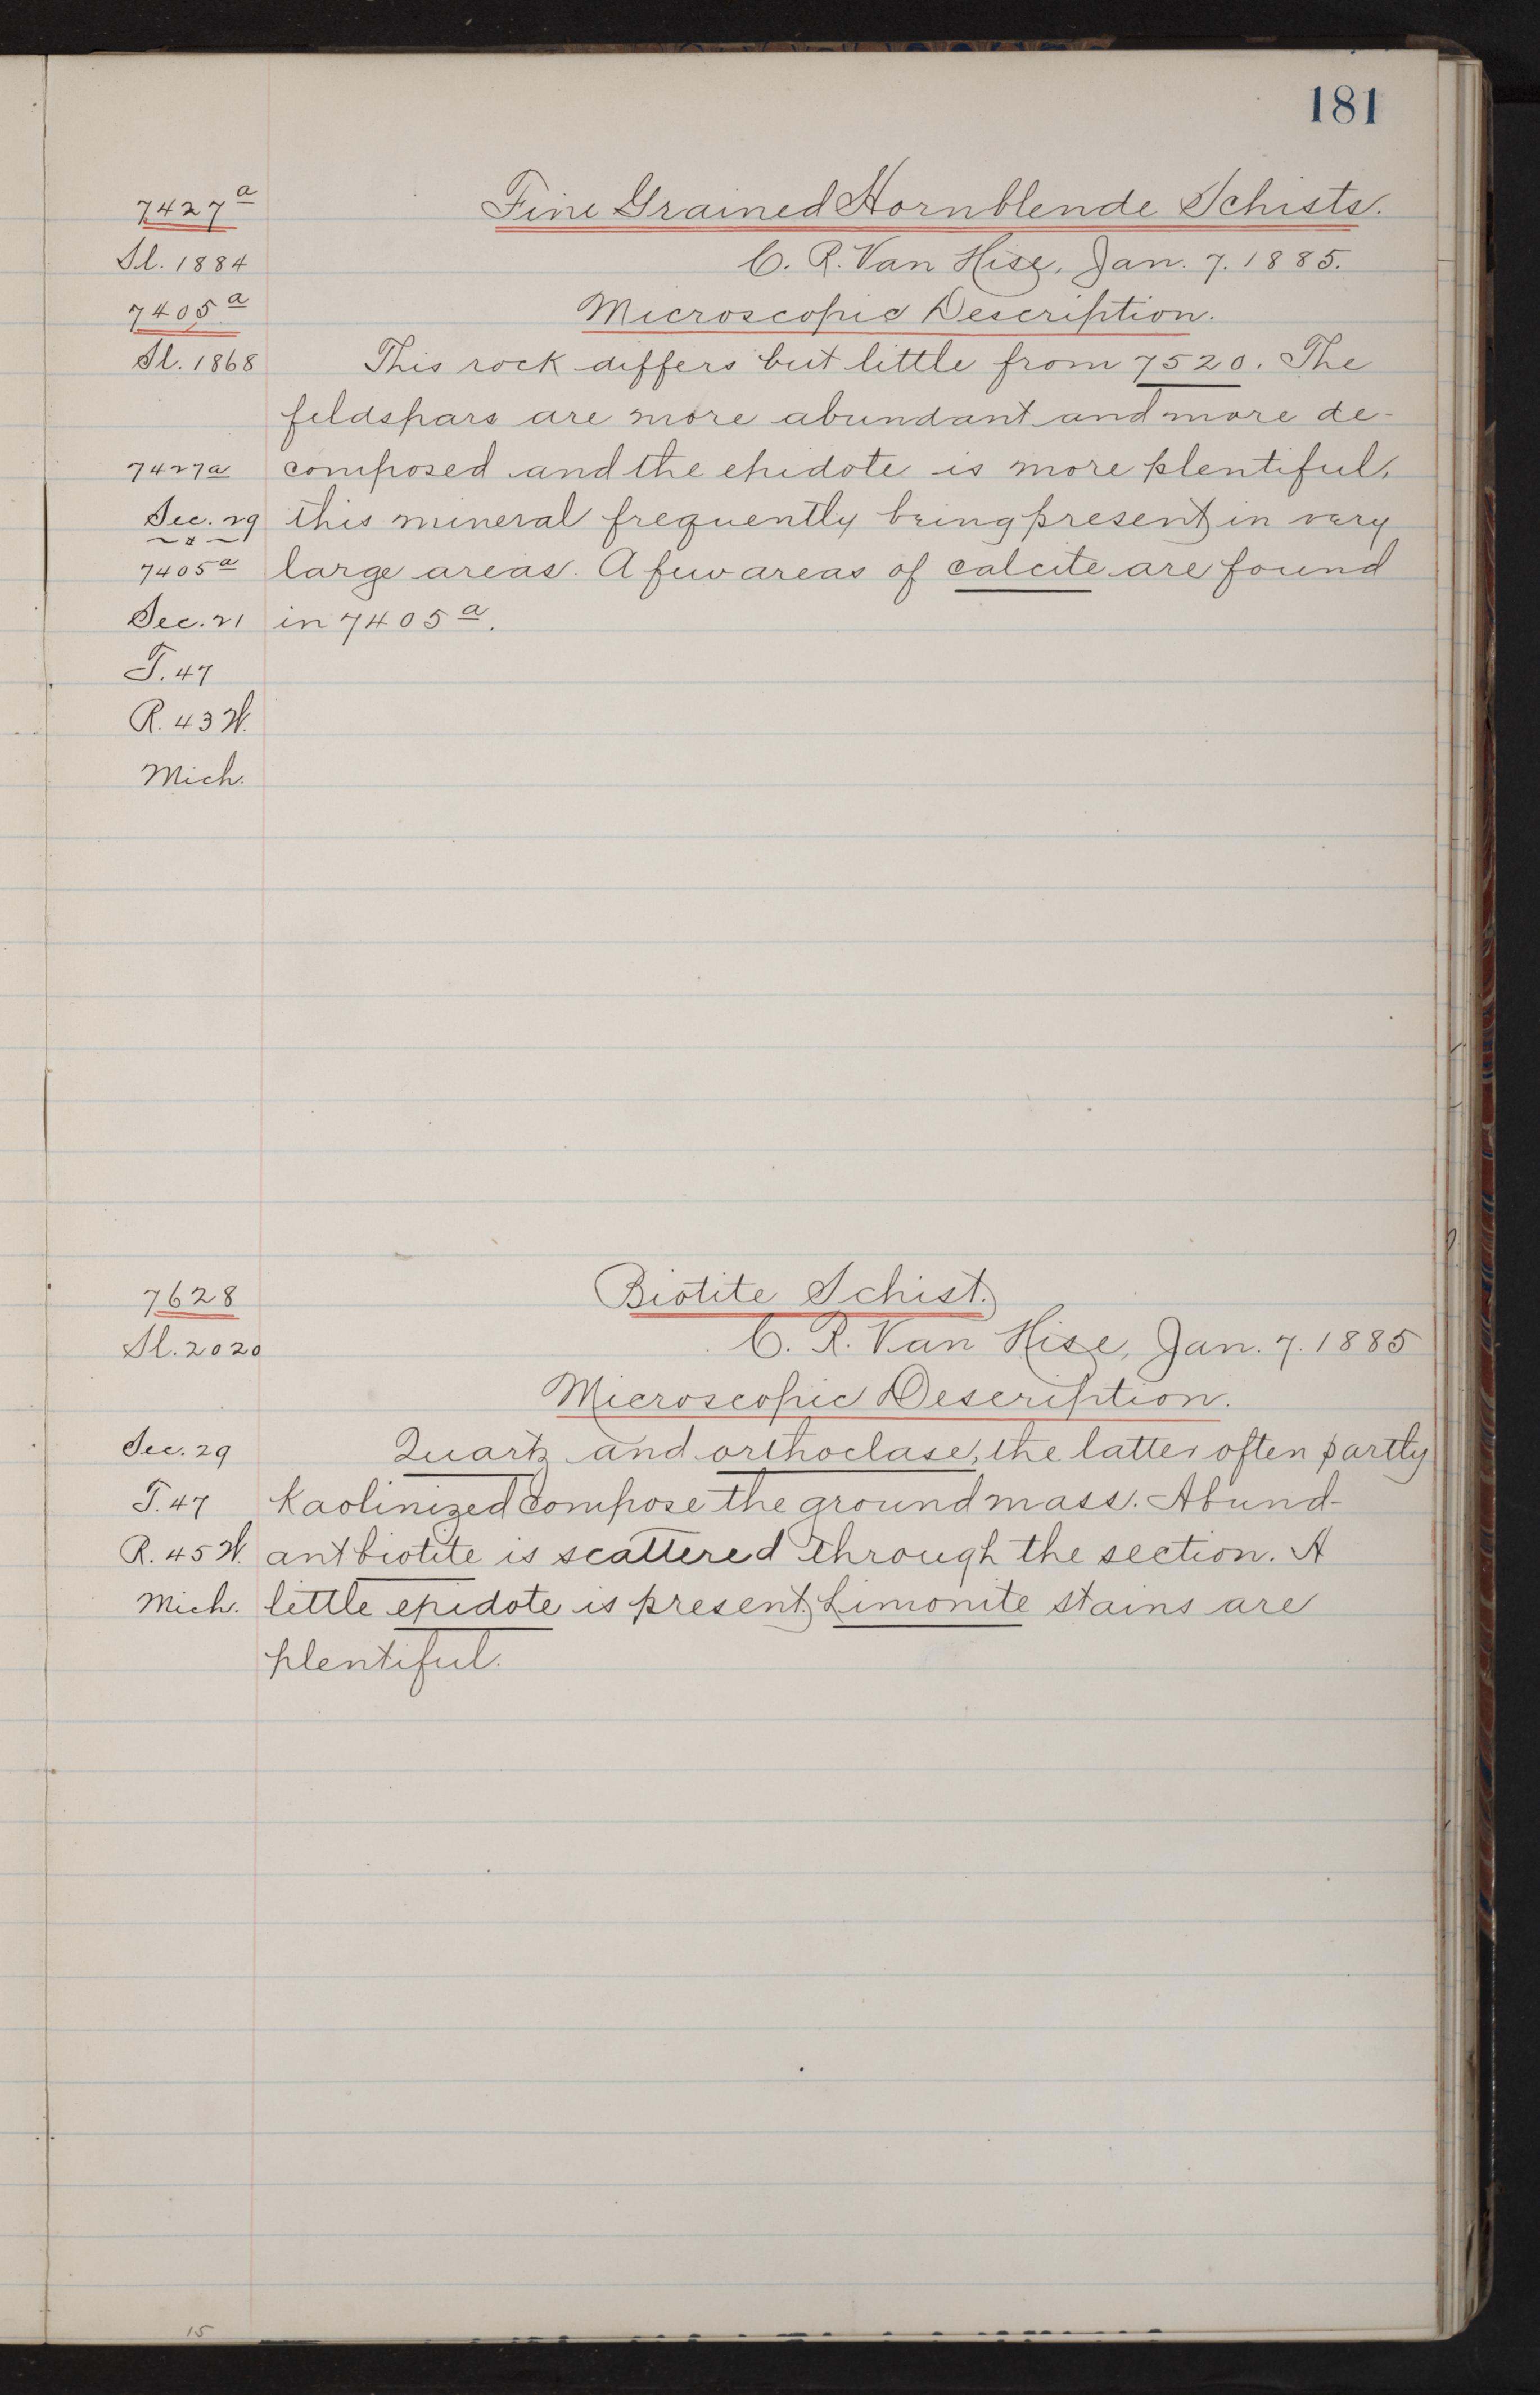 181
7427a Fine Grained Hornblende Schists.
Sl. 1884 C. R. Van Hise, Jan. 7. 1885.
7405a Microscopic Description.
Sl. 1868 This rock differs but little from 7520. The
feldspars are more abundant and more de-
7427a composed and the epidote is more plentiful,
Sec. 29 this mineral frequently being present in very
7405a large areas. A few areas of calcite are found
Sec. 21 in 7405a.
T. 47
R. 43 W.
Mich.
7628 Biotite Schist.
Sl. 2020 C. R. Van Hise, Jan. 7. 1885
Microscopic Description.
Sec. 29 Quartz and orthoclase, the latter often partly
T. 47 Kaolinized compose the groundmass. Abund-
R. 45 W. ant biotite is scattered through the section. A
Mich. little epidote is present. Limonite stains are
plentiful.
15